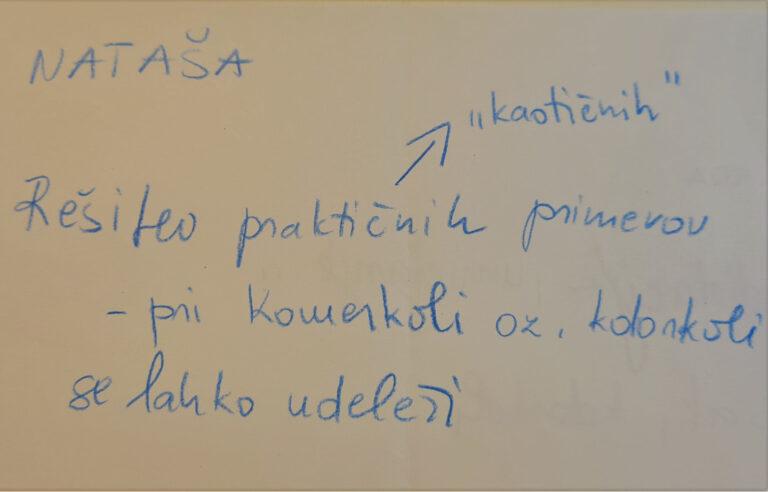 NATAŠA
"kaotičnih"
Rešitev praktičnih primerov
- pri komerkoli oz. kdorkoli
se lahko udeleži